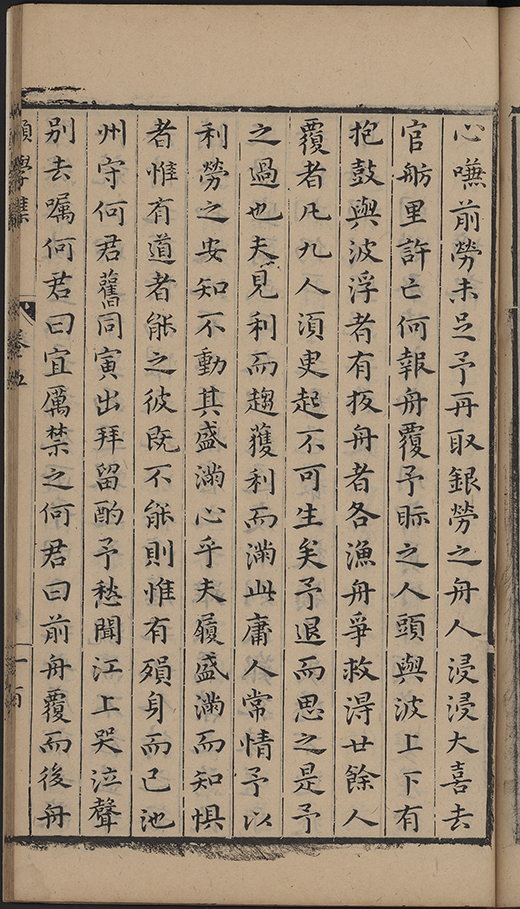 心嗛前勞未足予再取銀勞之舟人浸浸大喜去
官舫里許亡何報舟覆予眎之人頭與波上下有
抱鼓與波浮者有扳舟者各漁舟爭救得廿餘人
覆者凡九人湏臾起不可生矣予退而思之是予
之過也夫見利而趨獲利而滿此庸人常情予以
利勞之安知不動其盛滿心乎夫履盛滿而知惧
者惟有道者能之彼既不能則惟有殞身而已池
州守何君舊同寅出拜留酌予愁聞江上哭泣聲
別去嘱何君曰宜厲禁之何君曰前舟覆而後舟
類學集
卷